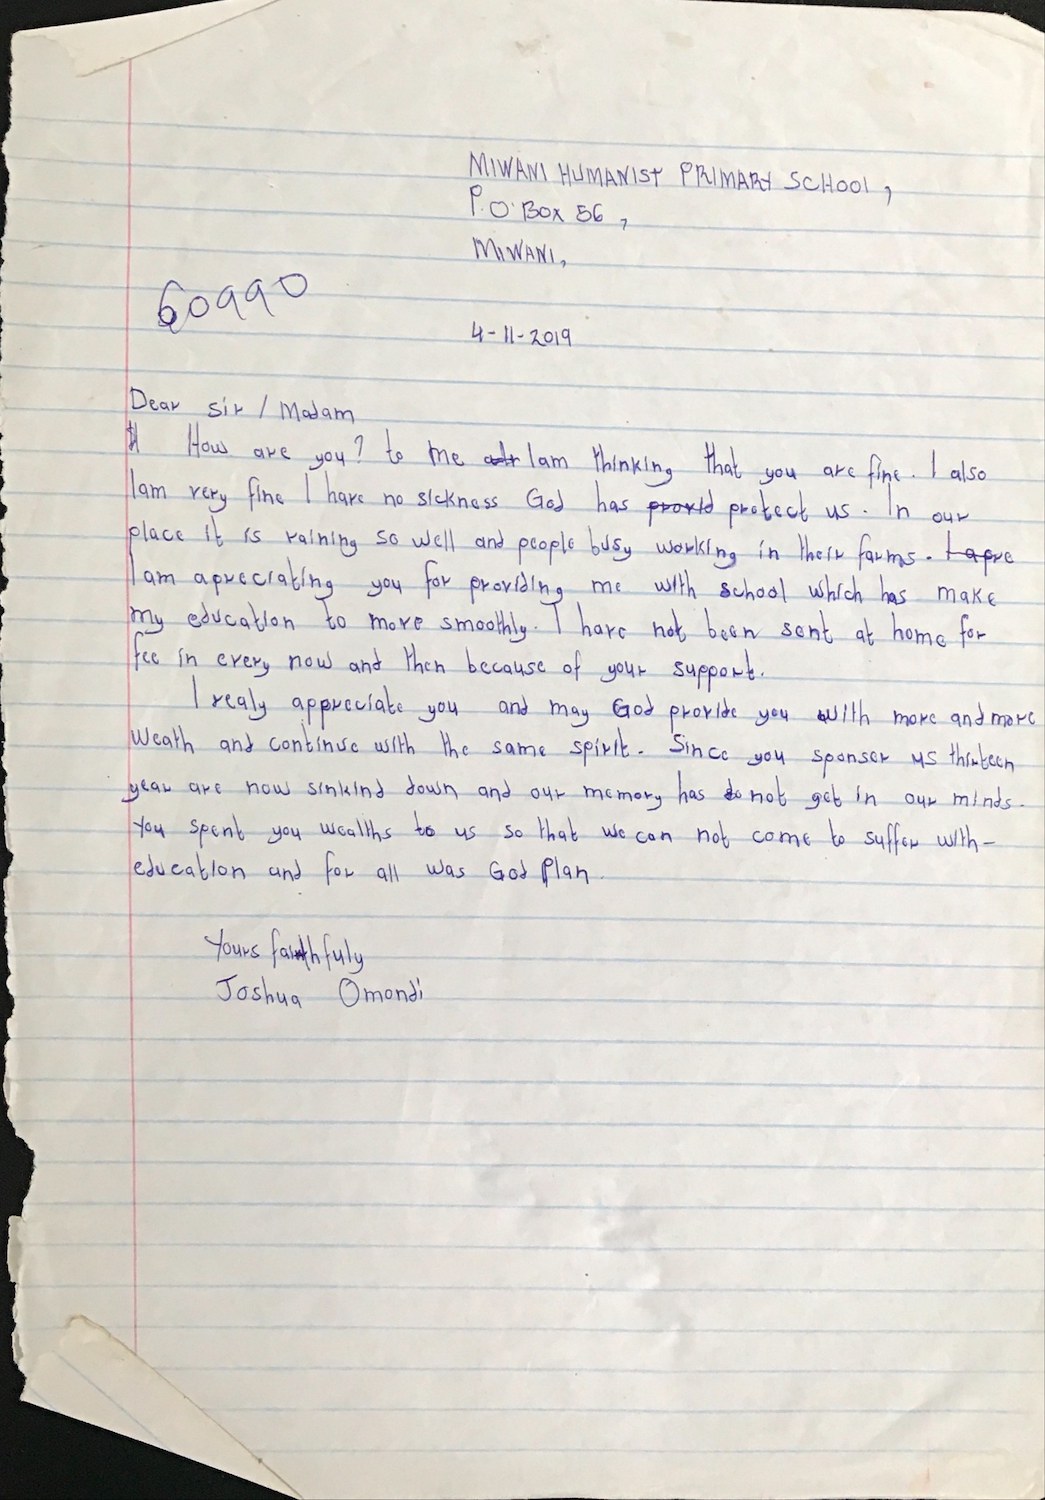 MIWANI HUMANIST PRIMARY SCHOOL,
P.O. BOX 56,
MIWANI,
60990
4-11-2019
Dear Sir / Madam
How are you? to me Iam thinking that you are fine. I also
Iam very fine I have no sickness God has provid protect us. In our
place it is raining so well and people busy working in their farms. I apre
I am apreciating you for providing me with school which has make
my education to more smoothly. I have not been sent at home for
fee in every now and then because of your support.
I realy appreciate you and may God provide you with more and more
Weath and continue with the same spirit. Since you sponser us thirteen
year are now sinkind down and our memory has do not get in our minds.
You spent you wealths to us so that we can not come to suffer with-
education and for all was God plan.
Yours faithfuly
Joshua Omondi